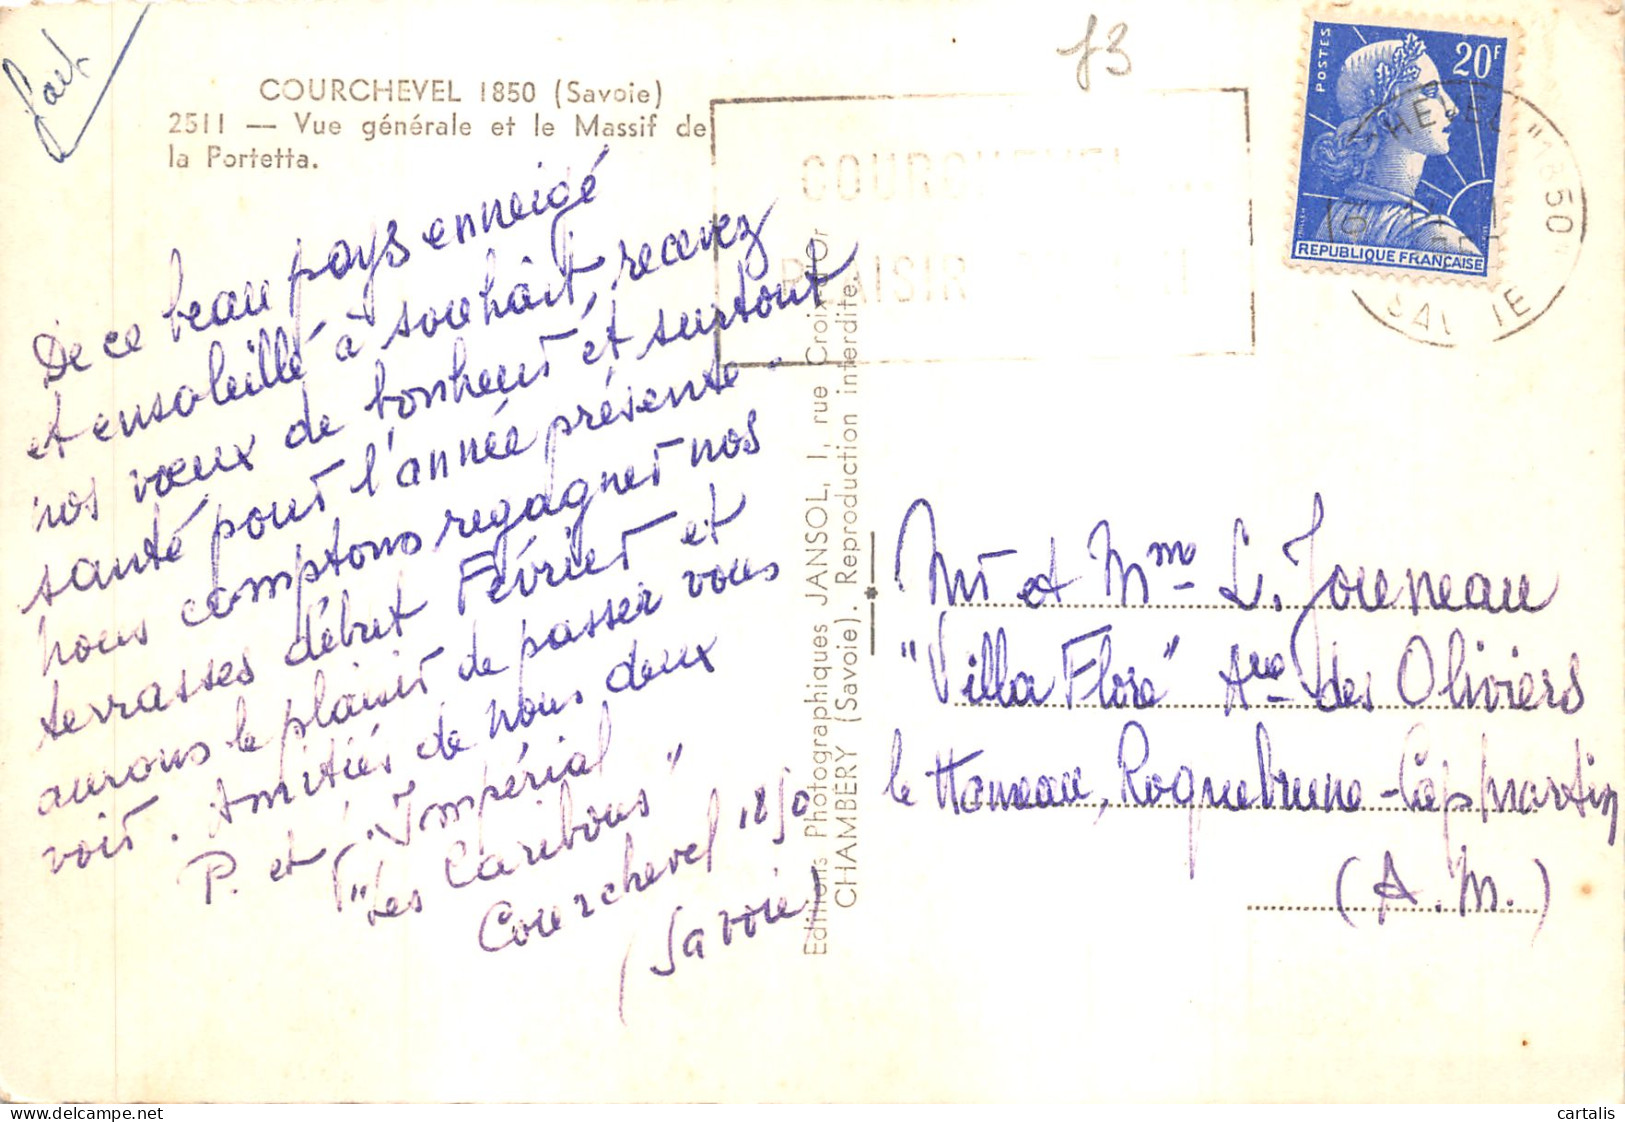 fait
COURCHEVEL 1850 (Savoie)
2511 — Vue générale et le Massif de
la Portetta.
De ce beau pays enneigé
et ensoleillé à souhait, recevez
nos vœux de bonheur et surtout
santé pour l'année présente.
nous comptons regagner nos
terrasses début Février et
aurons le plaisir de passer vous
voir. Amitiés de nous deux
P. et
Impérial
"Les Caribous"
Courchevel 1850
(Savoie)
Editions Photographiques JANSOL, 1, rue Croix d'Or
CHAMBÉRY (Savoie). Reproduction interdite.
COURCHEVEL
PLAISIR
f3
POSTES
20F
REPUBLIQUE FRANÇAISE
"1850"
SAVOIE
Mr et Mme L. Joueneau
"Villa Flore" Ave des Oliviers
le Hameau, Roquebrune-Cap Martin
(A.M.)
cartalis